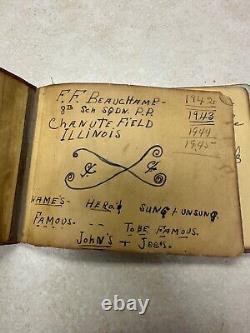 F.F. BEAUCHAMP-
8th Sch SQDN. P.P.
CHANUTE FIELD
ILLINOIS
1942
1943
1944
1945
NAME'S - HERO'S SUNG + UNSUNG
FAMOUS. -- TO BE FAMOUS.
JOHN'S + JOES.
© 132mpr